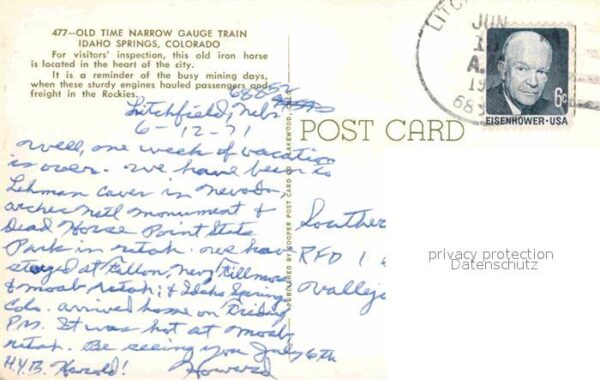 477—OLD TIME NARROW GAUGE TRAIN
IDAHO SPRINGS, COLORADO
For visitors' inspection, this old iron horse
is located in the heart of the city.
It is a reminder of the busy mining days,
when these sturdy engines hauled passengers and
freight in the Rockies.
68852
Litchfield, Nebr.
6-12-71
Well, one week of vacation
is over. We have been to
Lehman Caves in Nevada,
arches Natl monument &
Dead Horse Point State
Park in utah. We have
stayed at Fallon, Nev, Fillmore
& moab utah; & Idaho Springs
Colo. arrived home on Friday
P.M. It was hot at moab,
utah. Be seeing you July 6th
H.Y.B. Harold! Howard
POST CARD
LITCH
JUN
A.
19
68
6c
EISENHOWER·USA
Souther
RFD 1
Vallejo
privacy protection
Datenschutz